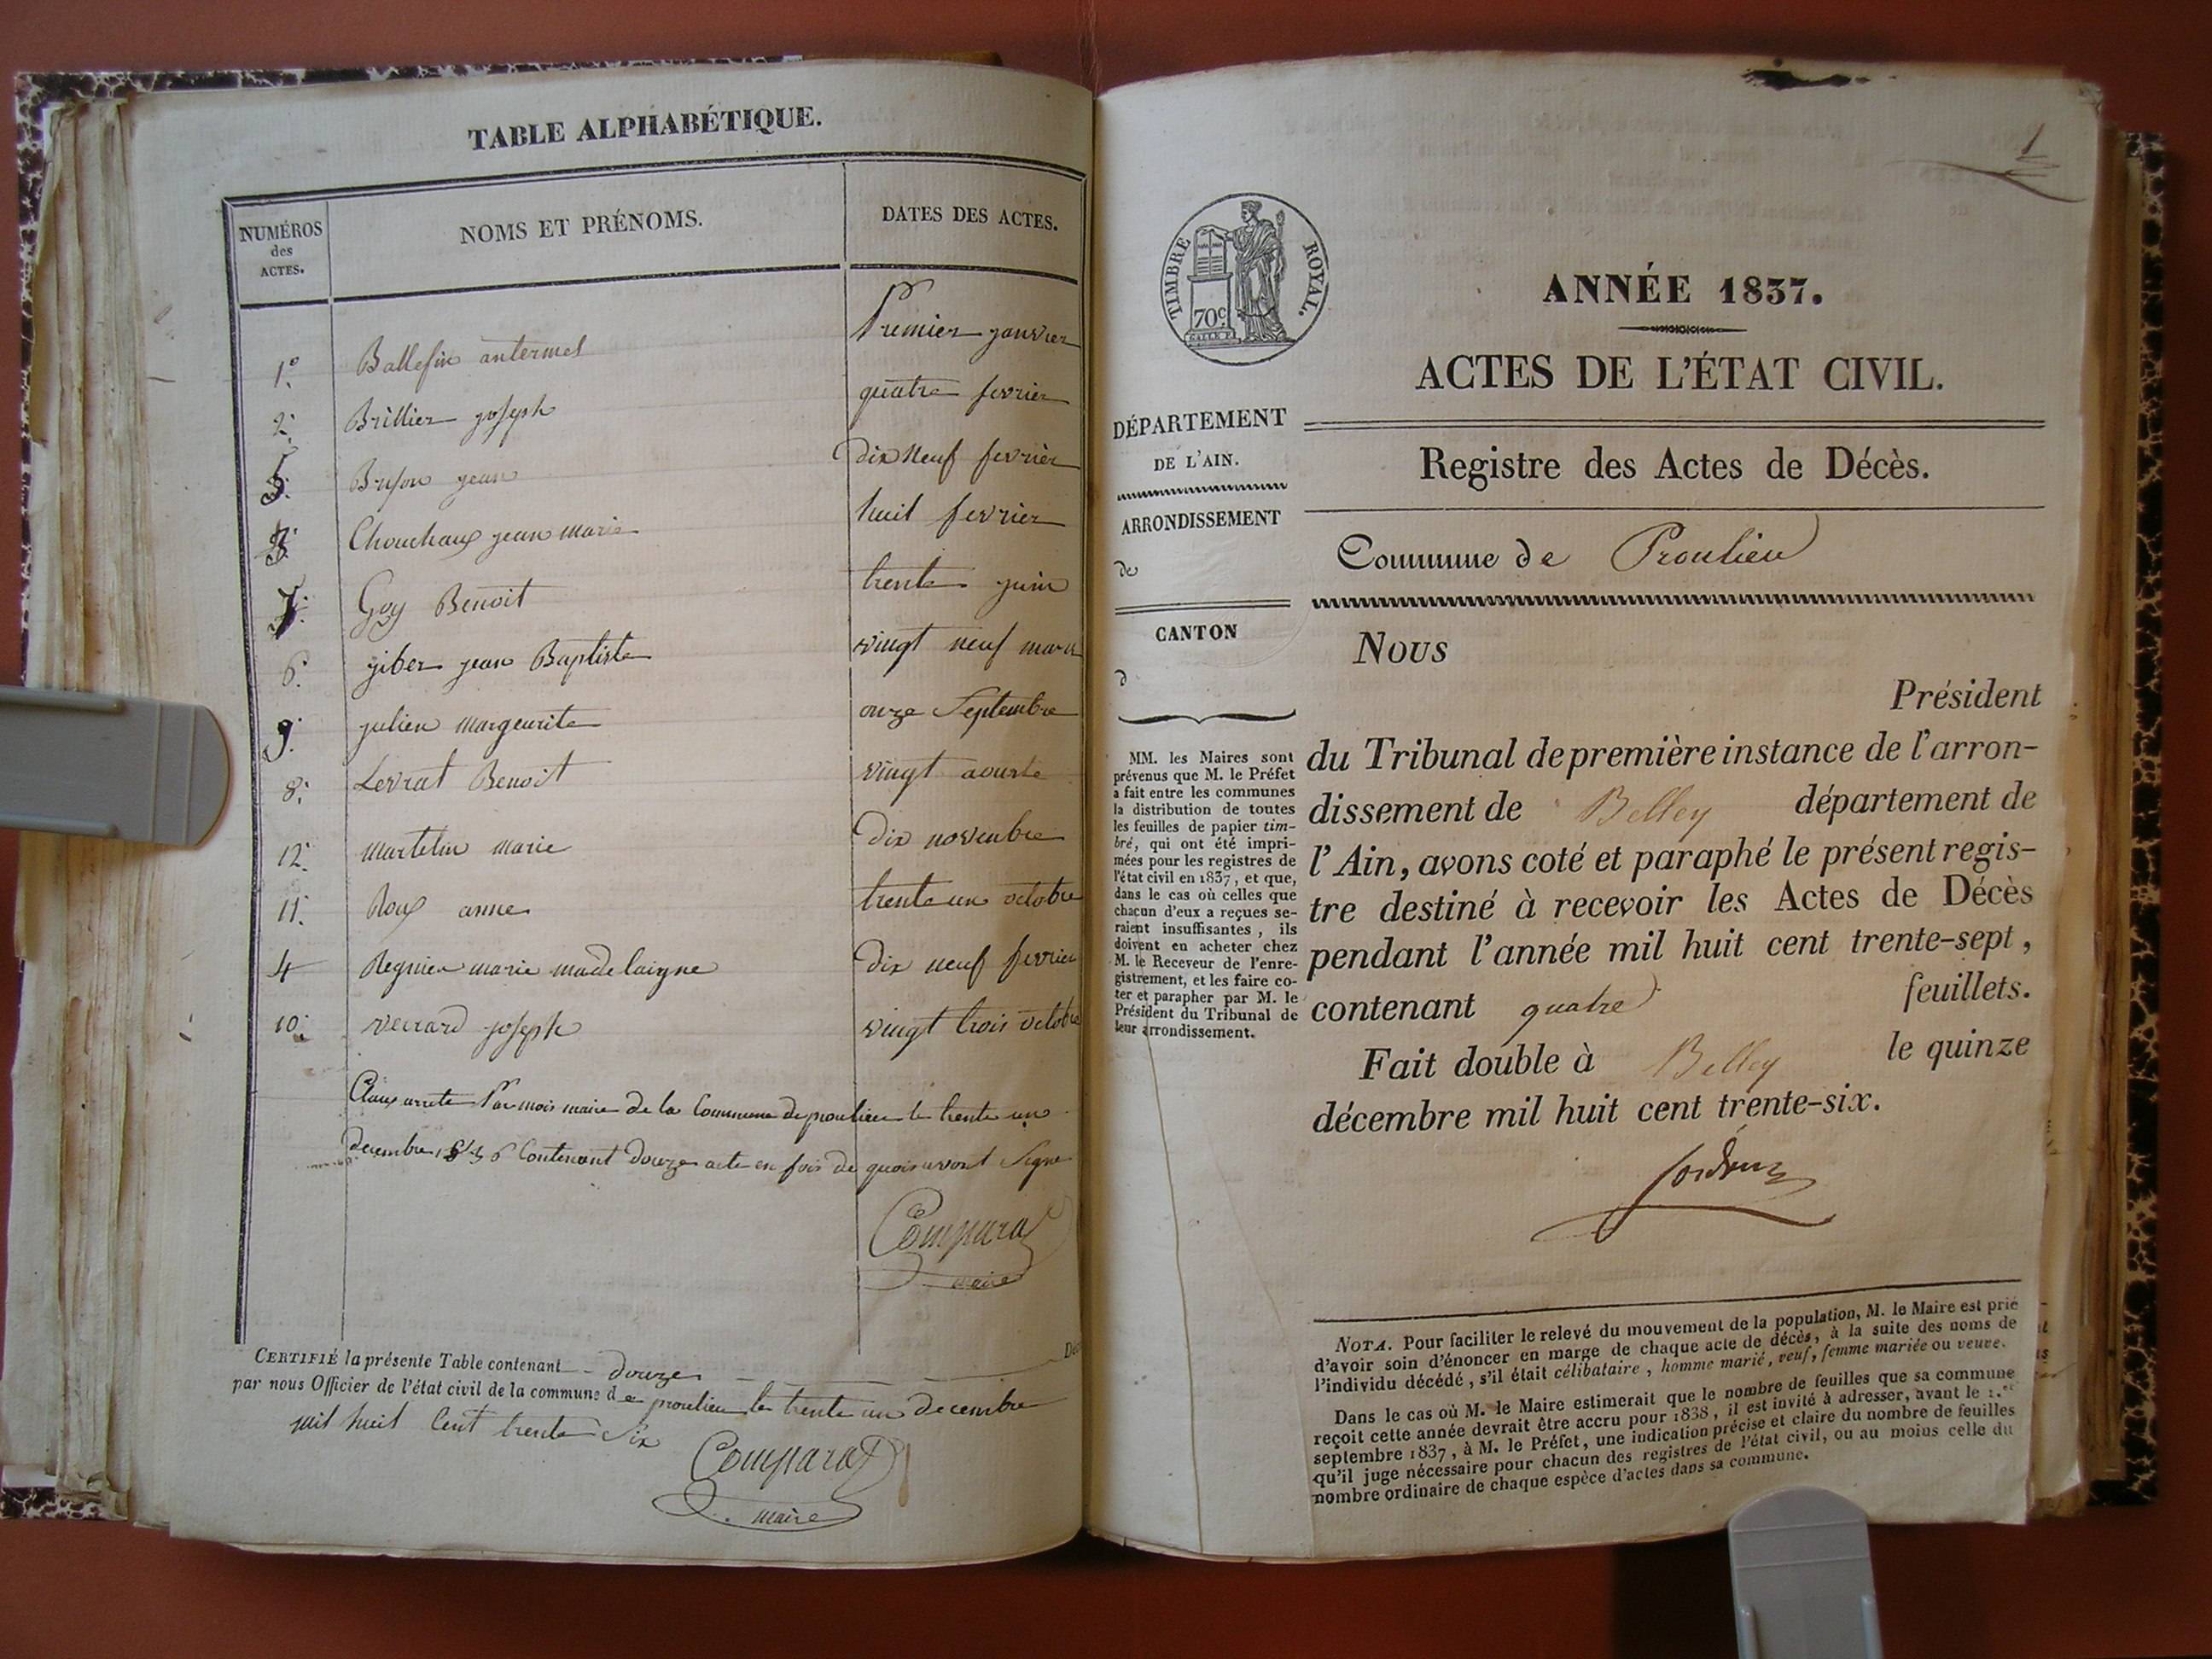 TABLE ALPHABÉTIQUE.
NUMÉROS des ACTES.
NOMS ET PRÉNOMS.
DATES DES ACTES.
1º Ballefin antermel Premier janvier
2. Brillier joseph quatre fevrier
5. Bruson jean dix neuf fevrier
3. Chouchoux jean marie huit fevrier
7. Goy Benoit trente juin
6. giber jean Baptiste vingt neuf mars
9. julien margeurite onze Septembre
8. Levrat Benoit vingt aouste
12. martelin marie dix novenbre
11. Roux anne trente un octobre
4 Regnier marie madelaigne dix neuf fevrier
10. verrard joseph vingt trois octobre
Claux arrete Par mois maire de la Commune de proulieu le trente un
decembre 1836 Contenant douze acte en fois de quoi avont Signe
Comparat
maire
CERTIFIÉ la présente Table contenant douze
par nous Officier de l'état civil de la commune de proulieu le trente un decembre
mil huit Cent trente Six
Comparat
maire
1
TIMBRE ROYAL.
70c
ANNÉE 1837.
ACTES DE L'ÉTAT CIVIL.
DÉPARTEMENT
DE L'AIN.
ARRONDISSEMENT
de
CANTON
d
MM. les Maires sont
prévenus que M. le Préfet
a fait entre les communes
la distribution de toutes
les feuilles de papier tim-
bré, qui ont été impri-
mées pour les registres de
l'état civil en 1837, et que,
dans le cas où celles que
chacun d'eux a reçues se-
raient insuffisantes, ils
doivent en acheter chez
M. le Receveur de l'enre-
gistrement, et les faire co-
ter et parapher par M. le
Président du Tribunal de
leur arrondissement.
Registre des Actes de Décès.
Commune de Proulieu
Nous
Président
du Tribunal de première instance de l'arron-
dissement de Belley département de
l'Ain, avons coté et paraphé le présent regis-
tre destiné à recevoir les Actes de Décès
pendant l'année mil huit cent trente-sept,
contenant quatre feuillets.
Fait double à Belley le quinze
décembre mil huit cent trente-six.
NOTA. Pour faciliter le relevé du mouvement de la population, M. le Maire est prié
d'avoir soin d'énoncer en marge de chaque acte de décès, à la suite des noms de
l'individu décédé, s'il était célibataire, homme marié, veuf, femme mariée ou veuve.
Dans le cas où M. le Maire estimerait que le nombre de feuilles que sa commune
reçoit cette année devrait être accru pour 1838, il est invité à adresser, avant le 1.er
septembre 1837, à M. le Préfet, une indication précise et claire du nombre de feuilles
qu'il juge nécessaire pour chacun des registres de l'état civil, ou au moins celle du
nombre ordinaire de chaque espèce d'actes dans sa commune.